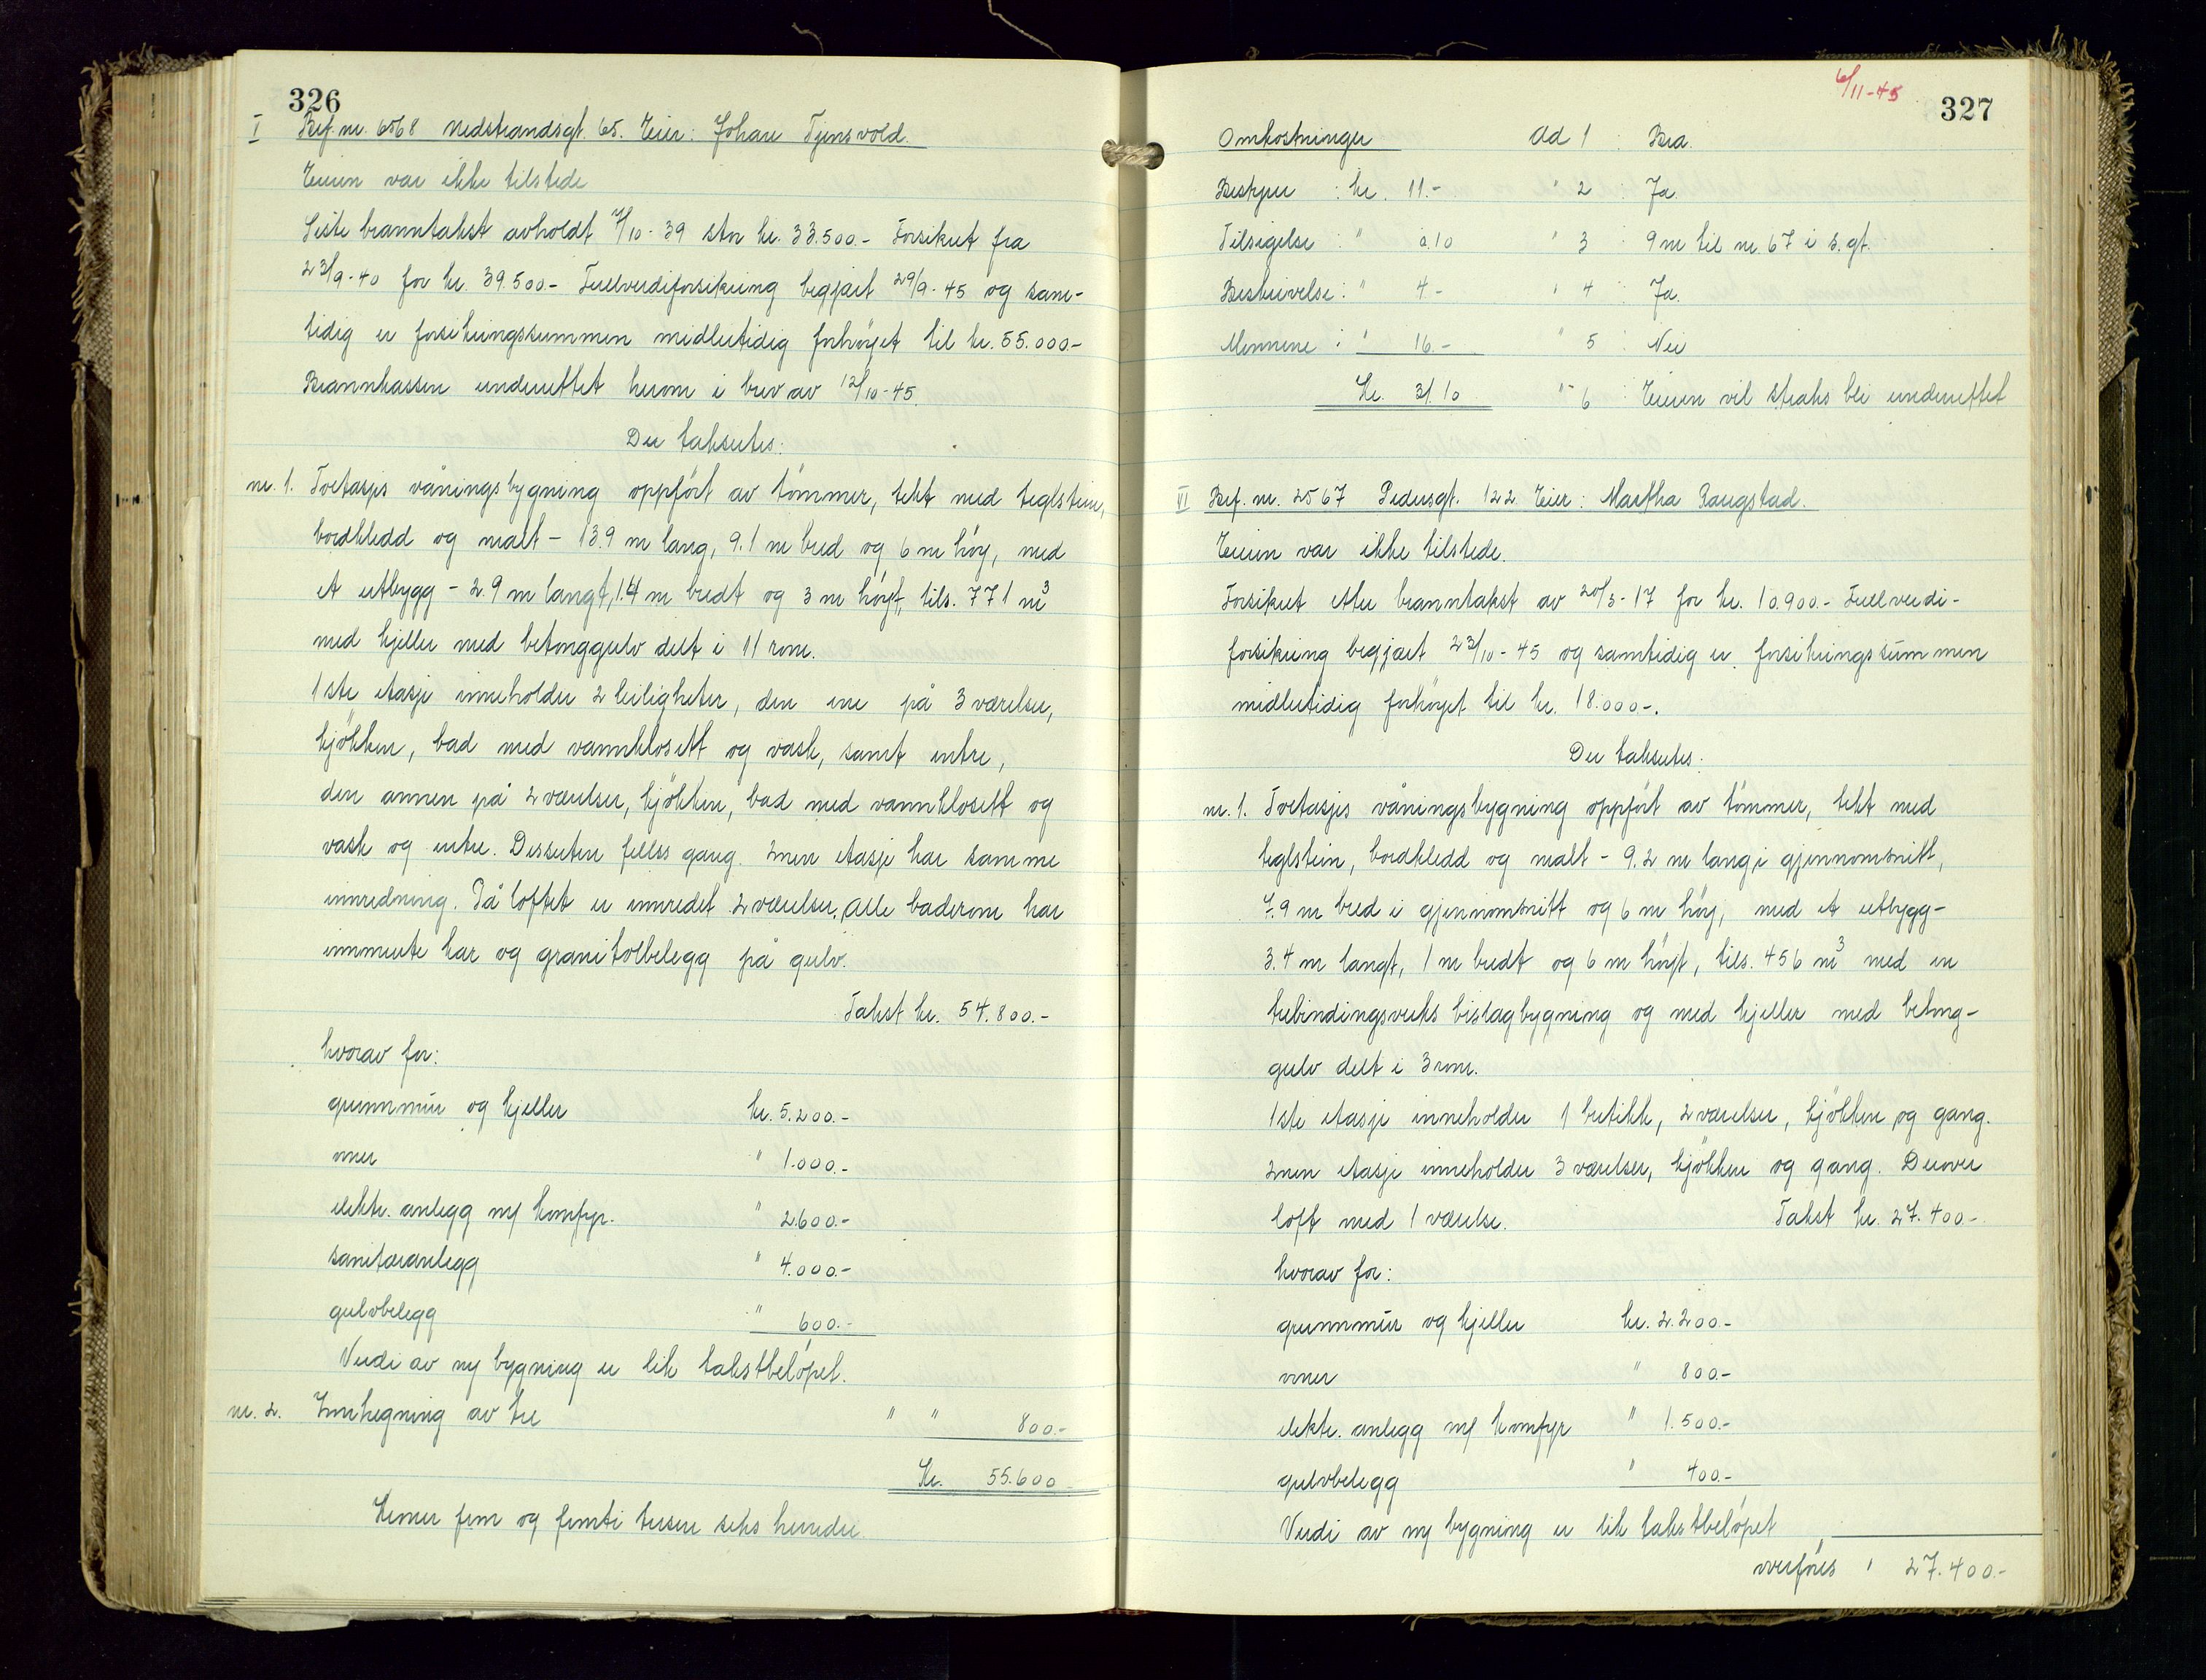 326
I Brf. nr. 6568 Nedstrandsgt. 65. Eier: Johan Tjensvold.
Eieren var ikke tilstede
Siste branntakst avholdt 7/10-39 stor kr. 33.500.- Forsikret fra
23/9-40 for kr. 39.500- Fullverdiforsikring begjært 29/9-45 og sam-
tidig er forsikringssummen midlertidig forhöyet til kr. 55.000-
Brannkassen underrettet herom i brev av 12/10-45.
Der takseres:
nr. 1. Toetasjes våningsbygning oppfört av tömmer, tekt med teglstein,
bordkledd og malt - 13.9 m lang, 9.1 m bred og 6 m höy, med
et utbygg - 2.9 m langt, 1.4 m bredt og 3 m höyt, tils. 771 m³
med kjeller med betonggulv delt i 11 rom.
1ste etasje inneholder 2 leiligheter, den ene på 3 værelser,
kjökken, bad med vannklosett og vask, samt entre,
den annen på 2 værelser, kjökken, bad med vannklosett og
vask og entre. Dessuten felles gang. 2nen etasje har samme
innredning. På loftet er innredet 2 værelser. Alle baderom har
innmurte kar og granitolbelegg på gulv.
Takst kr. 54.800.-
hvorav for:
grunnmur og kjeller kr. 5.200.-
ovner " 1.000.-
elektr. anlegg m/ komfyr. " 2.600.-
sanitæranlegg " 4.000.-
gulvbelegg " 600.-
Verdi av ny bygning er lik takstbelöpet.
nr. 2. Innhegning av tre " " 800.-
Kr. 55.600-
Kroner fem og femti tusen seks hundre.
6/11-45
327
Omkostninger Ad 1 : Bra.
Beskjær : kr. 11.- " 2 : Ja.
Tilsigelse : " 0.10 " 3 : 9 m til nr. 67 i s. gt.
Beskrivelse : " 4- " 4 : Ja.
Mennene : " 16.- " 5 : Nei
Kr. 31.10 " 6 : Eieren vil straks bli underrettet
VI Brf. nr. 2567 Pedersgt. 122 Eier: Martha Raugstad.
Eieren var ikke tilstede.
Forsikret etter branntakst av 20/3-17 for kr. 10.900.- Fullverdi-
forsikring begjært 23/10-45 og samtidig er forsikringssummen
midlertidig forhöyet til kr. 18.000-.
Der takseres:
nr. 1. Toetasjes våningsbygning oppfört av tömmer, tekt med
teglstein, bordkledd og malt - 9.2 m lang i gjennomsnitt,
7.9 m bred i gjennomsnitt og 6 m höy, med et utbygg-
3.4 m langt, 1 m bredt og 6 m höyt, tils. 456 m³ med en
trebindingsverks bislagbygning og med kjeller med betong-
gulv delt i 3 rom.
1ste etasje inneholder 1 butikk, 2 værelser, kjökken og gang.
2nen etasje inneholder 3 værelser, kjökken og gang. Derover
loft med 1 værelse. Takst kr. 27.400-
hvorav for:
grunnmur og kjeller kr. 2.200-
ovner " 800.-
elektr. anlegg m/ komfyr " 1.500.-
gulvbelegg " 400.-
Verdi av ny bygning er lik takstbelöpet
overföres " 27.400.-